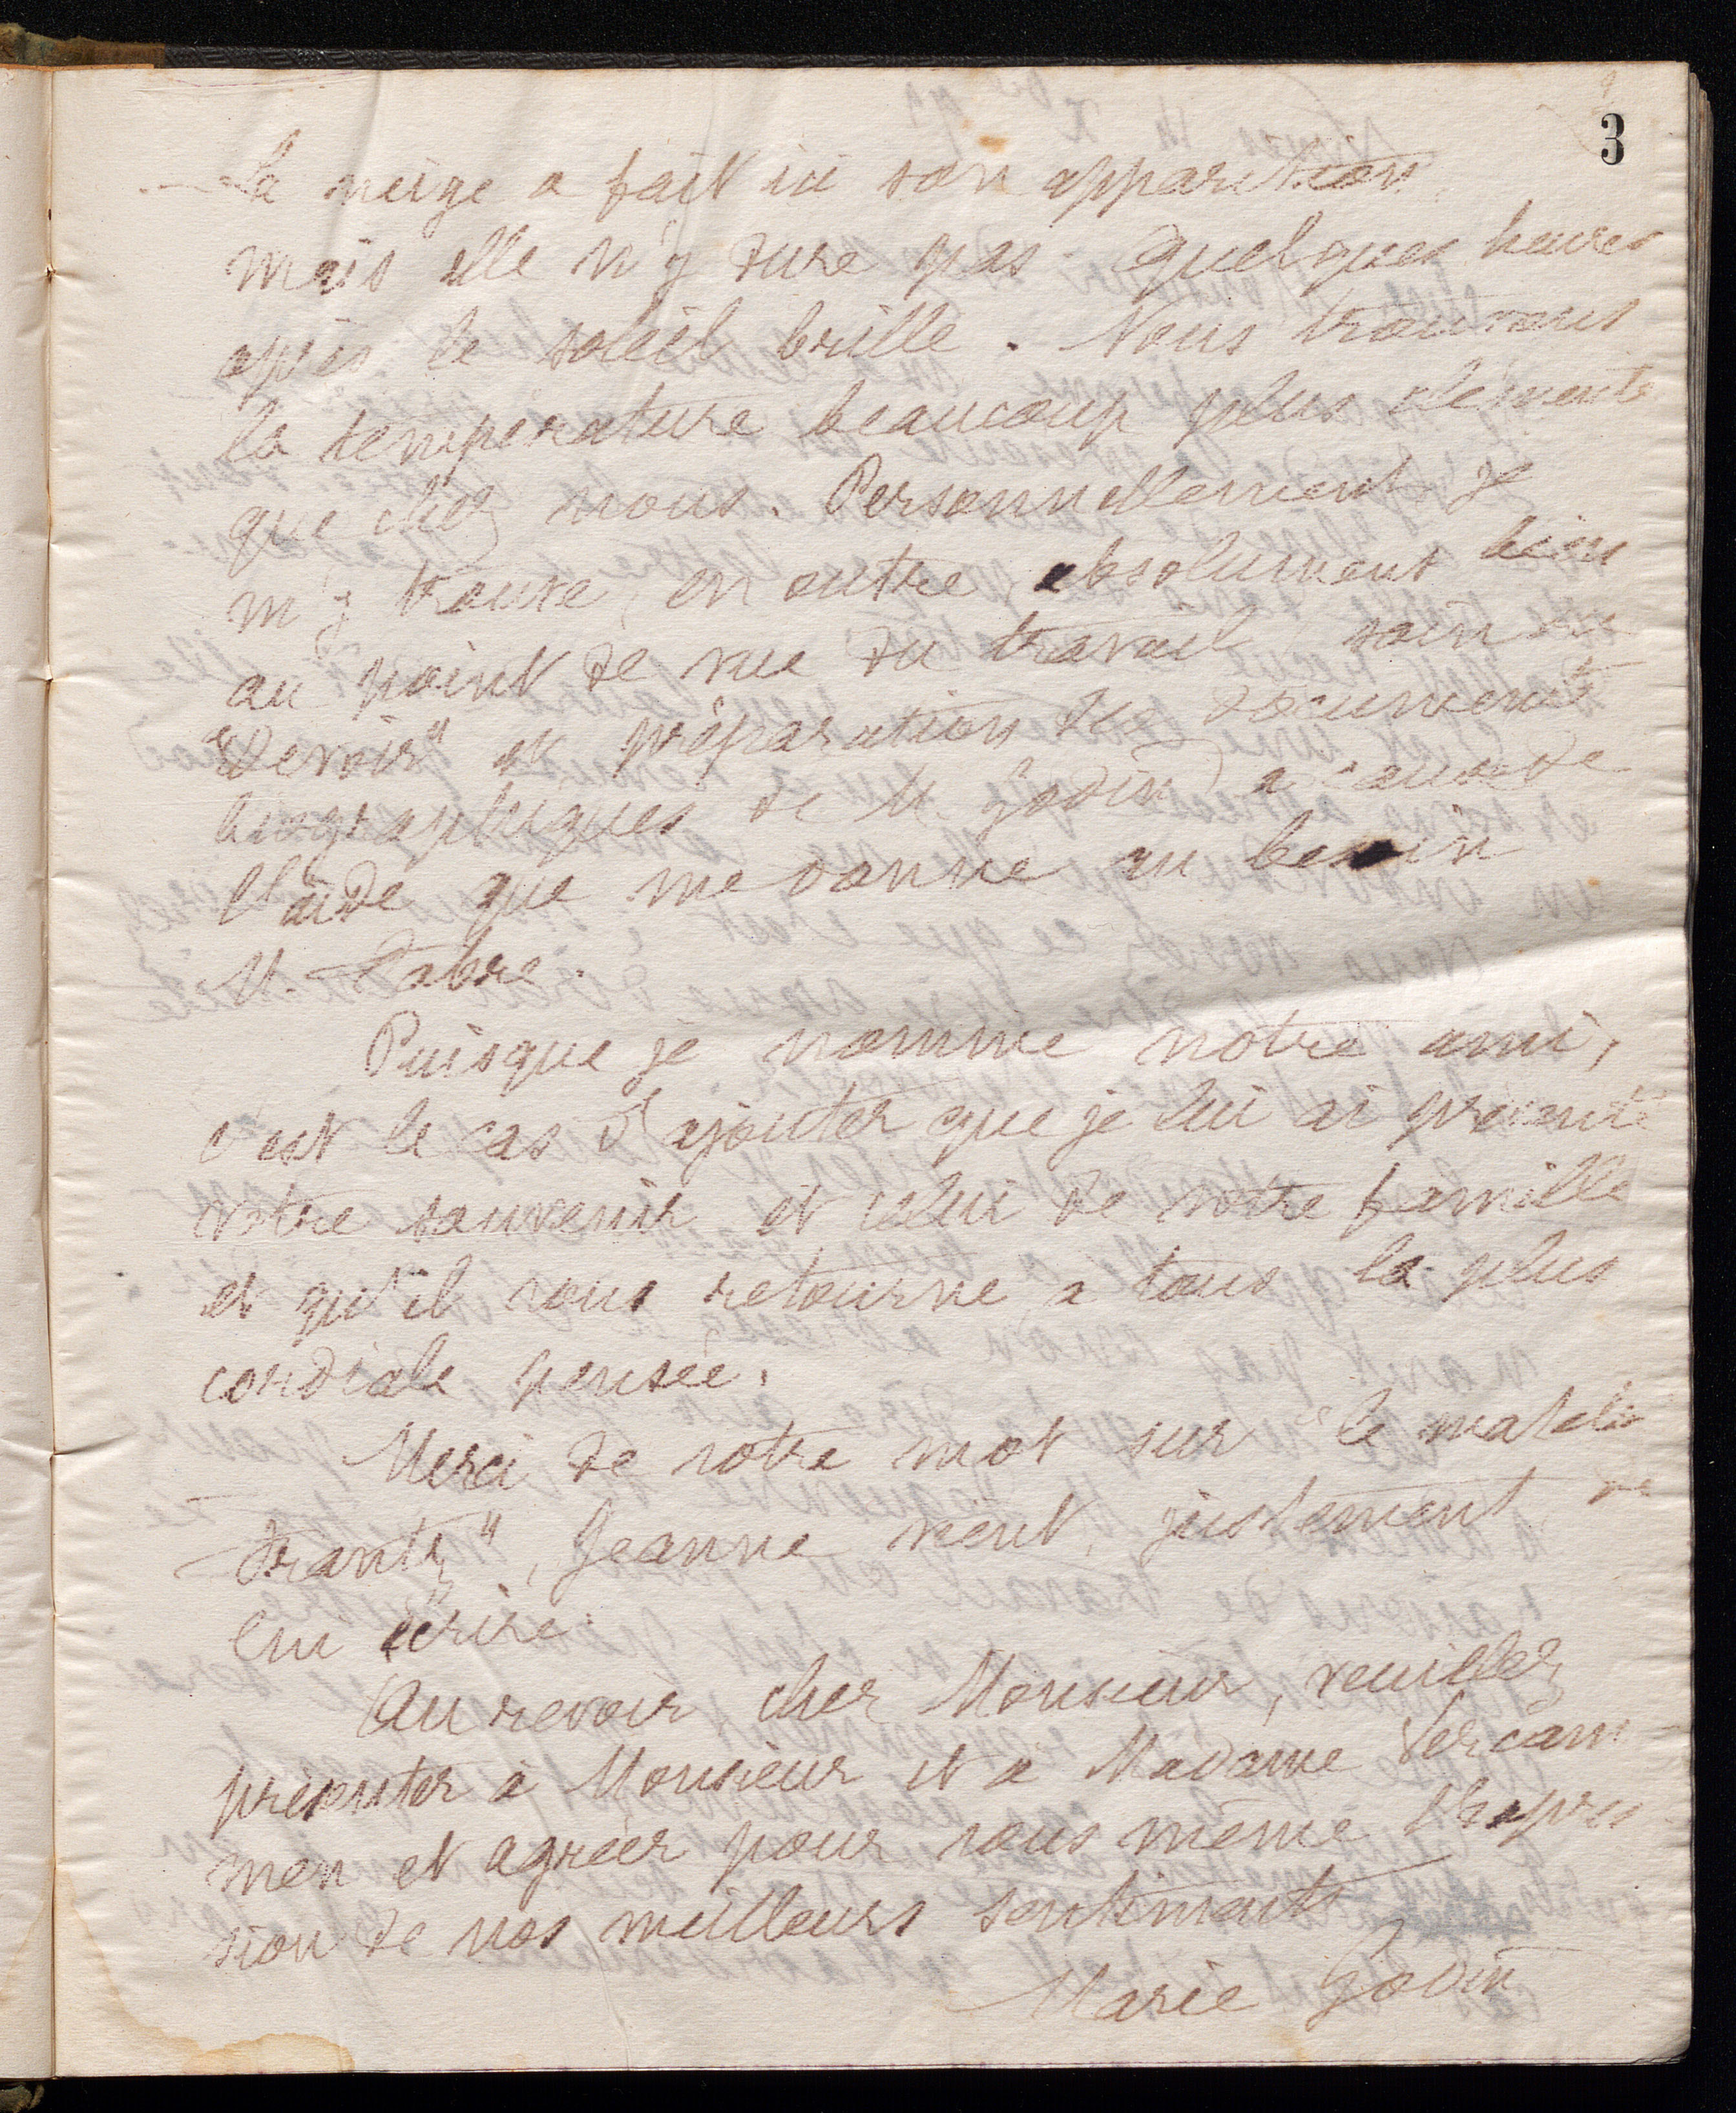 3
La neige a fait ici son apparition
mais elle n'y dure pas. Quelques heures
après le soleil brille. Nous trouvons
la température beaucoup plus clémente
que chez nous. Personnellement je
m'y trouve, en outre, absolument bien
au point de vue du travail, soin du
"Devoir" et préparation des documents
biographiques de M. Godin, à cause de
l'aide que me donne au besoin
M. Fabre.
Puisque je nomme notre ami,
c'est le cas d'ajouter que je lui ai présenté
votre souvenir et celui de votre famille
et qu'il vous retourne à tous la plus
cordiale pensée.
Merci de votre mot sur "le matelas
Frantz", Jeanne vient justement de
lui écrire.
Au revoir cher Monsieur, veuillez
présenter à Monsieur et à Madame Vercam-
men et agréer pour vous même l'expres-
sion de nos meilleurs sentiments
Marie Godin